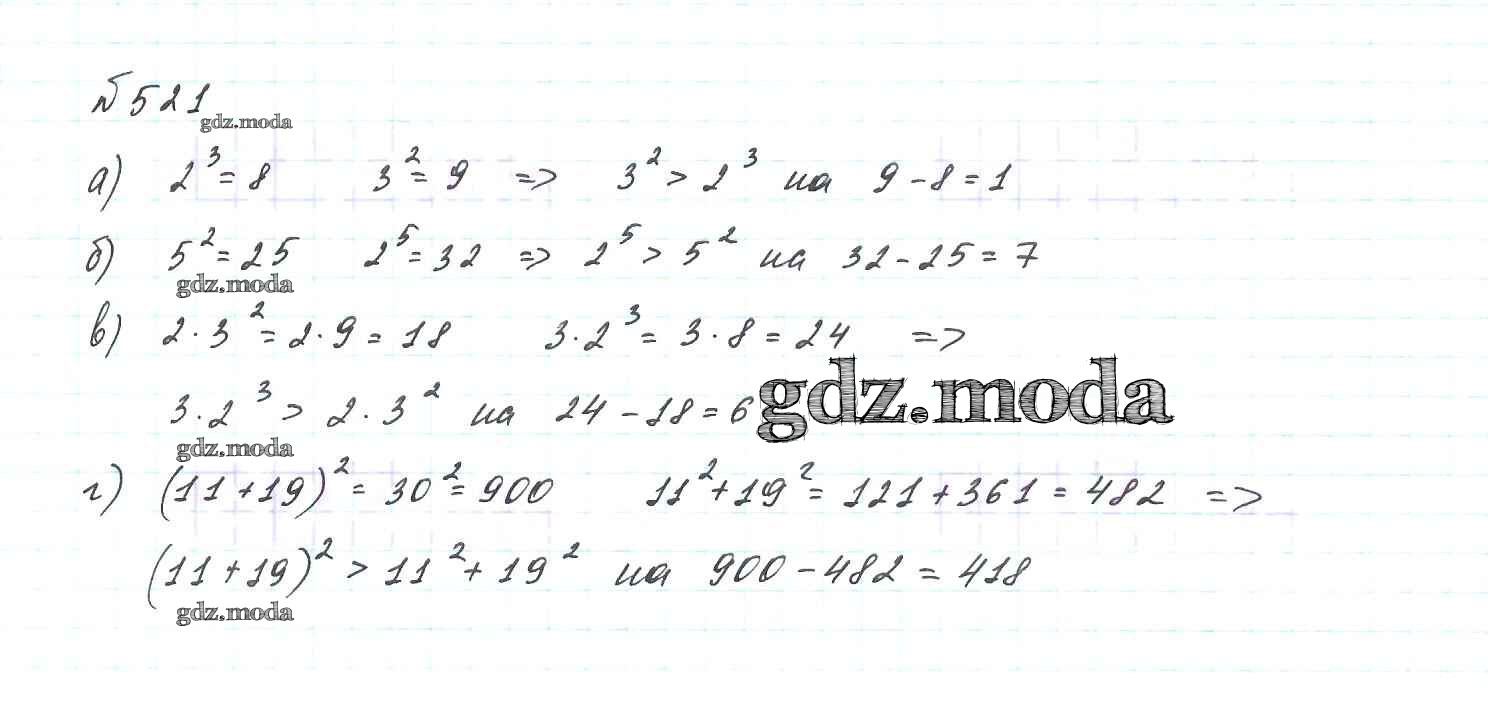 № 521
gdz.moda
а) 2³ = 8 3² = 9 => 3² > 2³ на 9 - 8 = 1
б) 5² = 25 2⁵ = 32 => 2⁵ > 5² на 32 - 25 = 7
gdz.moda
в) 2 · 3² = 2 · 9 = 18 3 · 2³ = 3 · 8 = 24 =>
3 · 2³ > 2 · 3² на 24 - 18 = 6
gdz.moda
gdz.moda
г) (11 + 19)² = 30² = 900 11² + 19² = 121 + 361 = 482 =>
(11 + 19)² > 11² + 19² на 900 - 482 = 418
gdz.moda